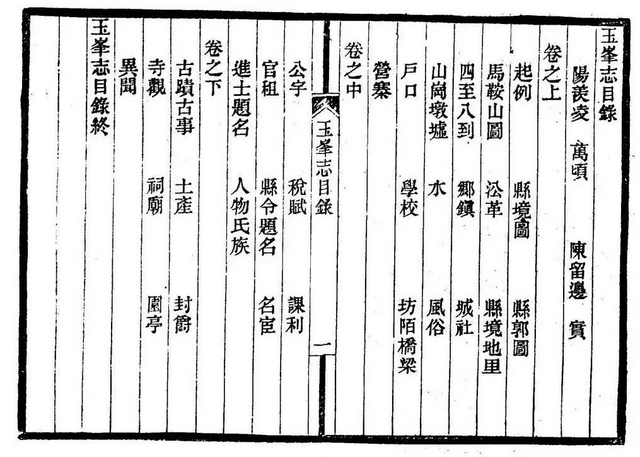 玉峯志目錄
陽羨凌 萬頃 陳留邊 實
卷之上
起例 縣境圖 縣郭圖
馬鞍山圖 㳂革 縣境地里
四至八到 鄉鎮 城社
山崗墩墟 水 風俗
戶口 學校 坊陌橋梁
營寨
卷之中
玉峯志目錄 一
公宇 稅賦 課利
官租 縣令題名 名宦
進士題名 人物氏族
卷之下
古蹟古事 土產 封爵
寺觀 祠廟 園亭
異聞
玉峯志目錄終